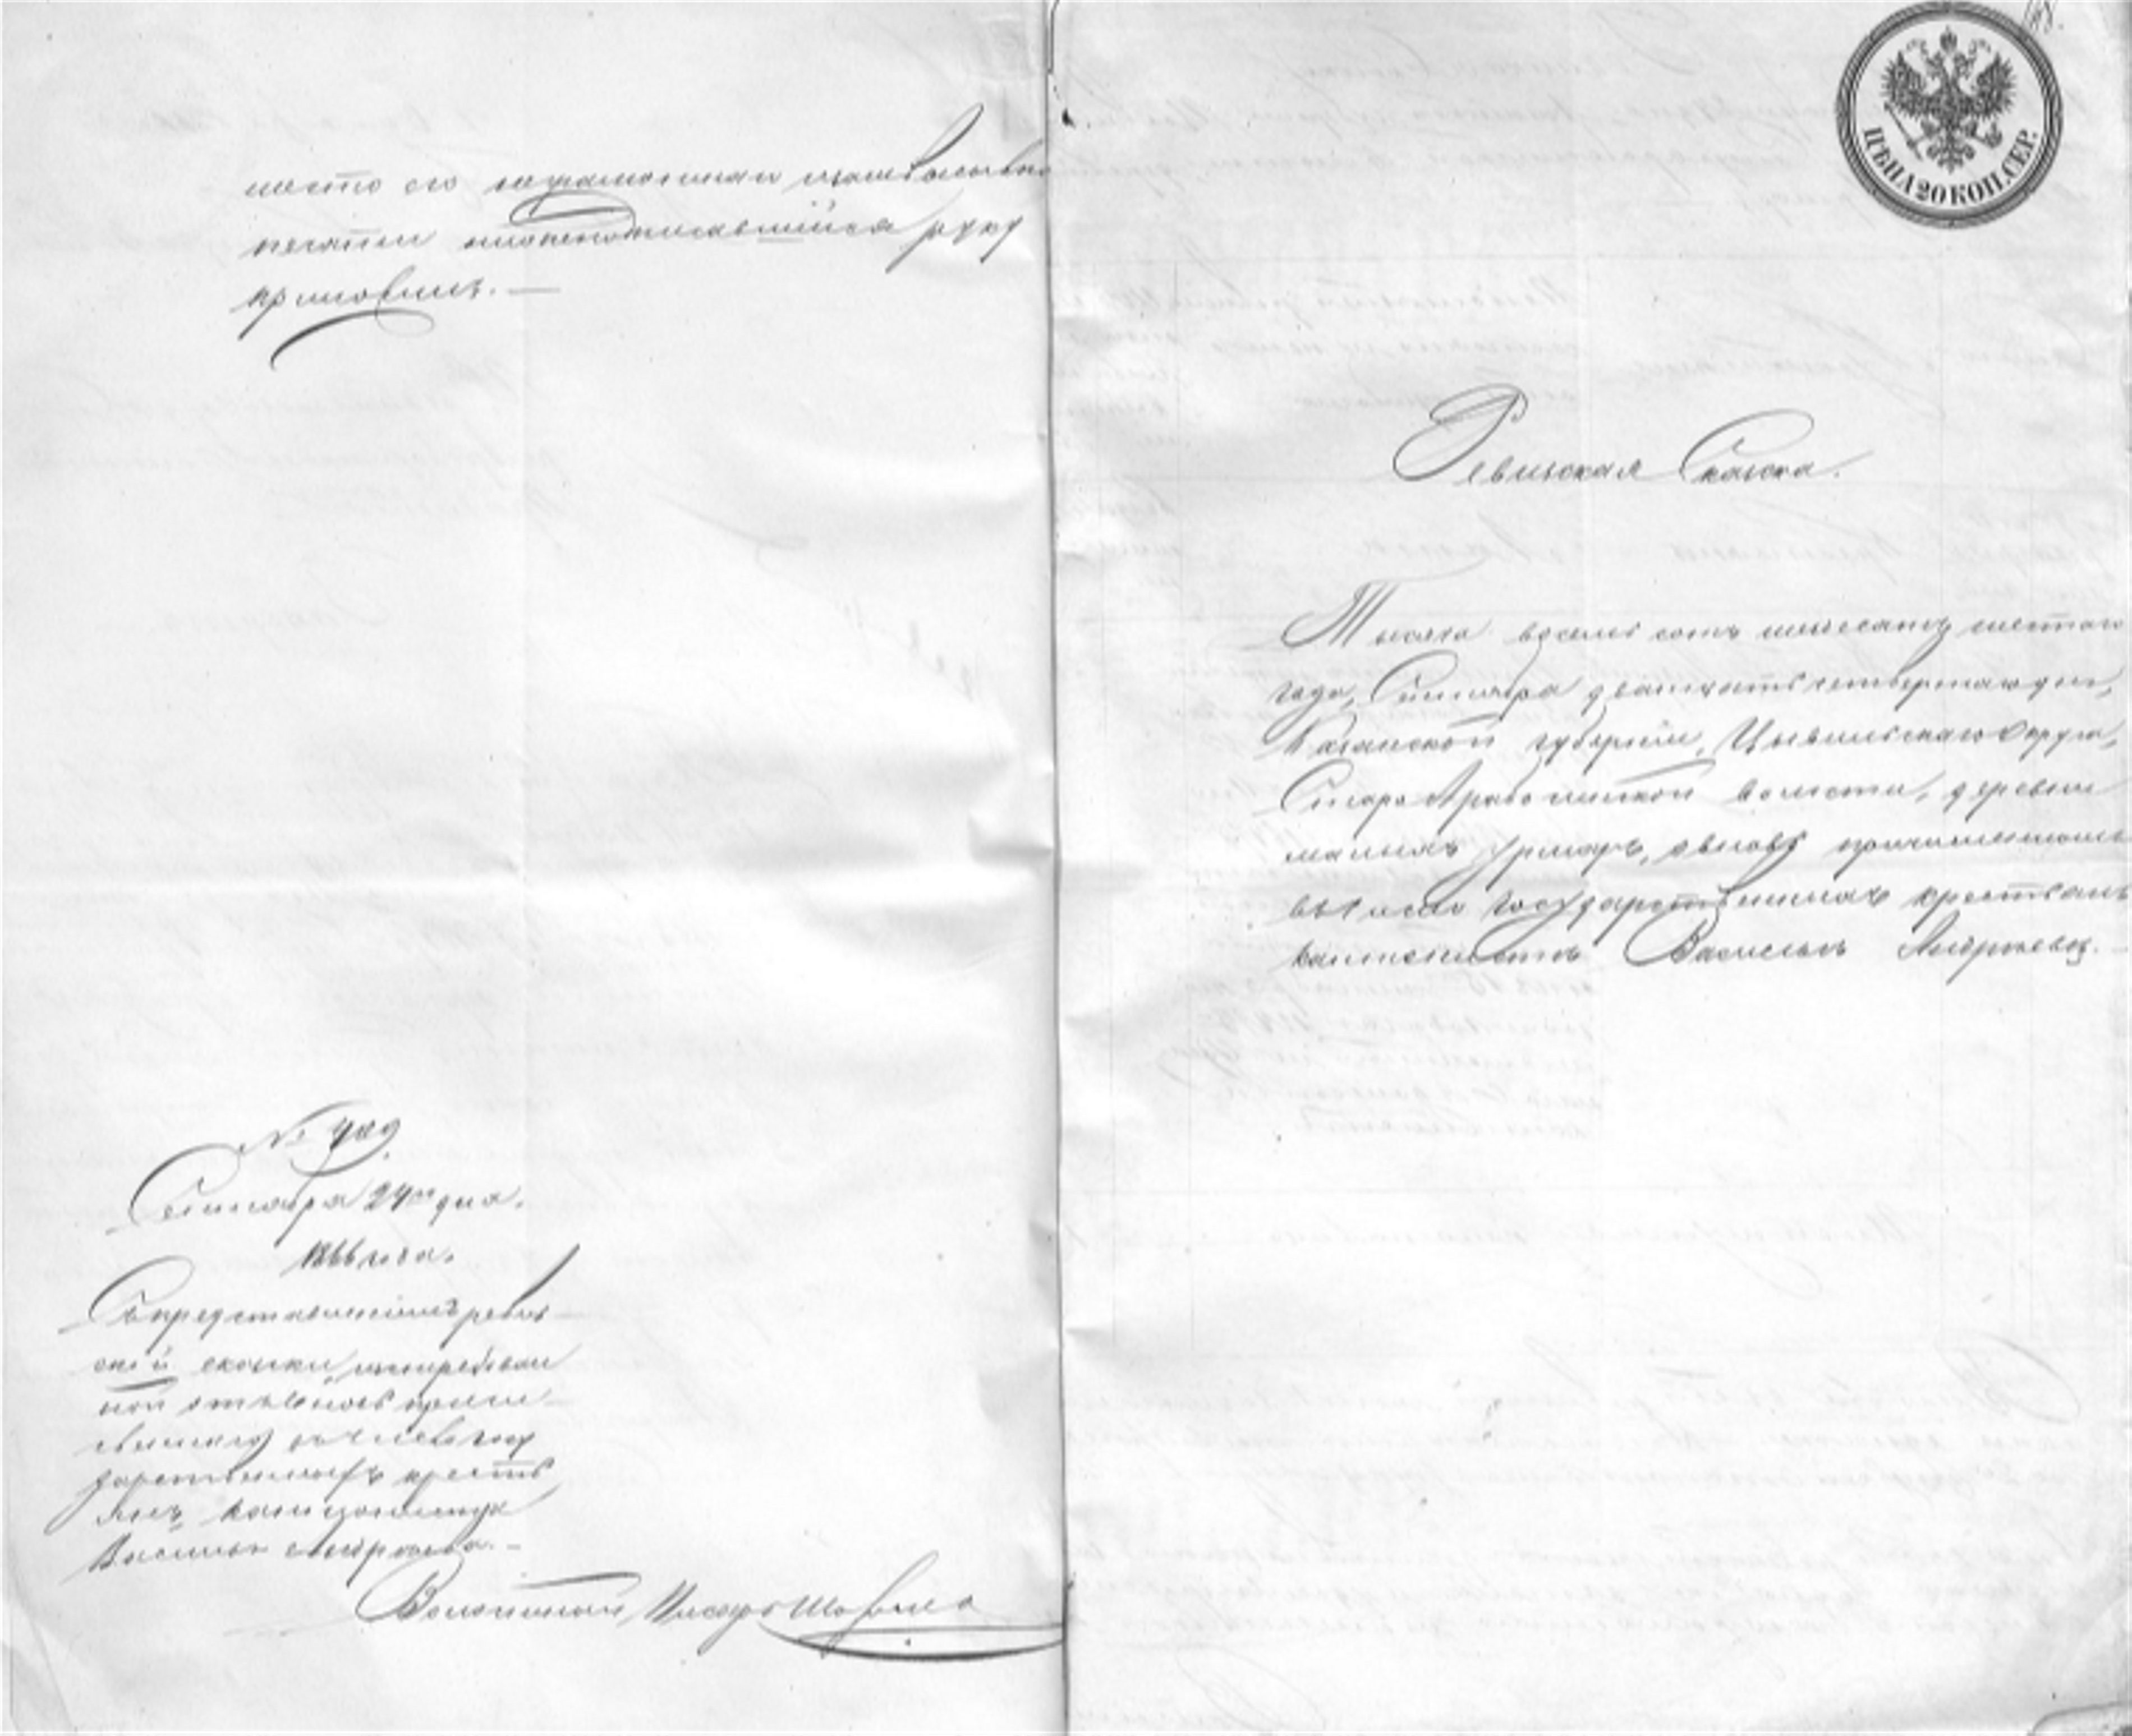 место его неграмотнаи
печатии нижеподписавшійся руку
приложилъ. —
№ 409.
Сентября 24го дня.
1866 года.
Съ представленіемъ ревиз-
ской сказки, истребован
ной отъ вновь причи-
сленнаго въ число госу
дарственныхъ кресть
янъ кантониста
Василья Андреева. —
Волостной Писарь
ЦѢНА 20 КОП. СЕР.
Ревизская Сказка.
Тысяча восемь сотъ шестьдесятъ шестаго
года, Сентября двадцать четвертаго дня,
Казанской губерніи, Цывильскаго округа,
Старо Арабосинской волости, деревни
малыхъ Урмаръ, о вновь причисленномъ
въ число государственныхъ крестьянъ
кантонистѣ Васильѣ Андреевѣ. —